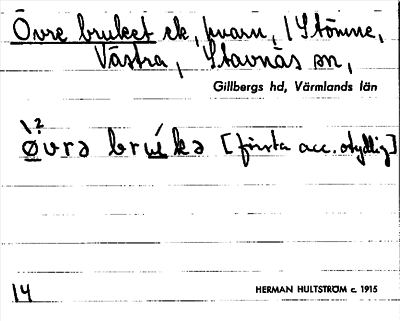 Övre bruket ek, kvarn, i Stömne,
Västra, Stavnäs sn,
Gillbergs hd, Värmlands län
\?
øvrə brúkə [första acc. otydlig]
14
HERMAN HULTSTRÖM c. 1915